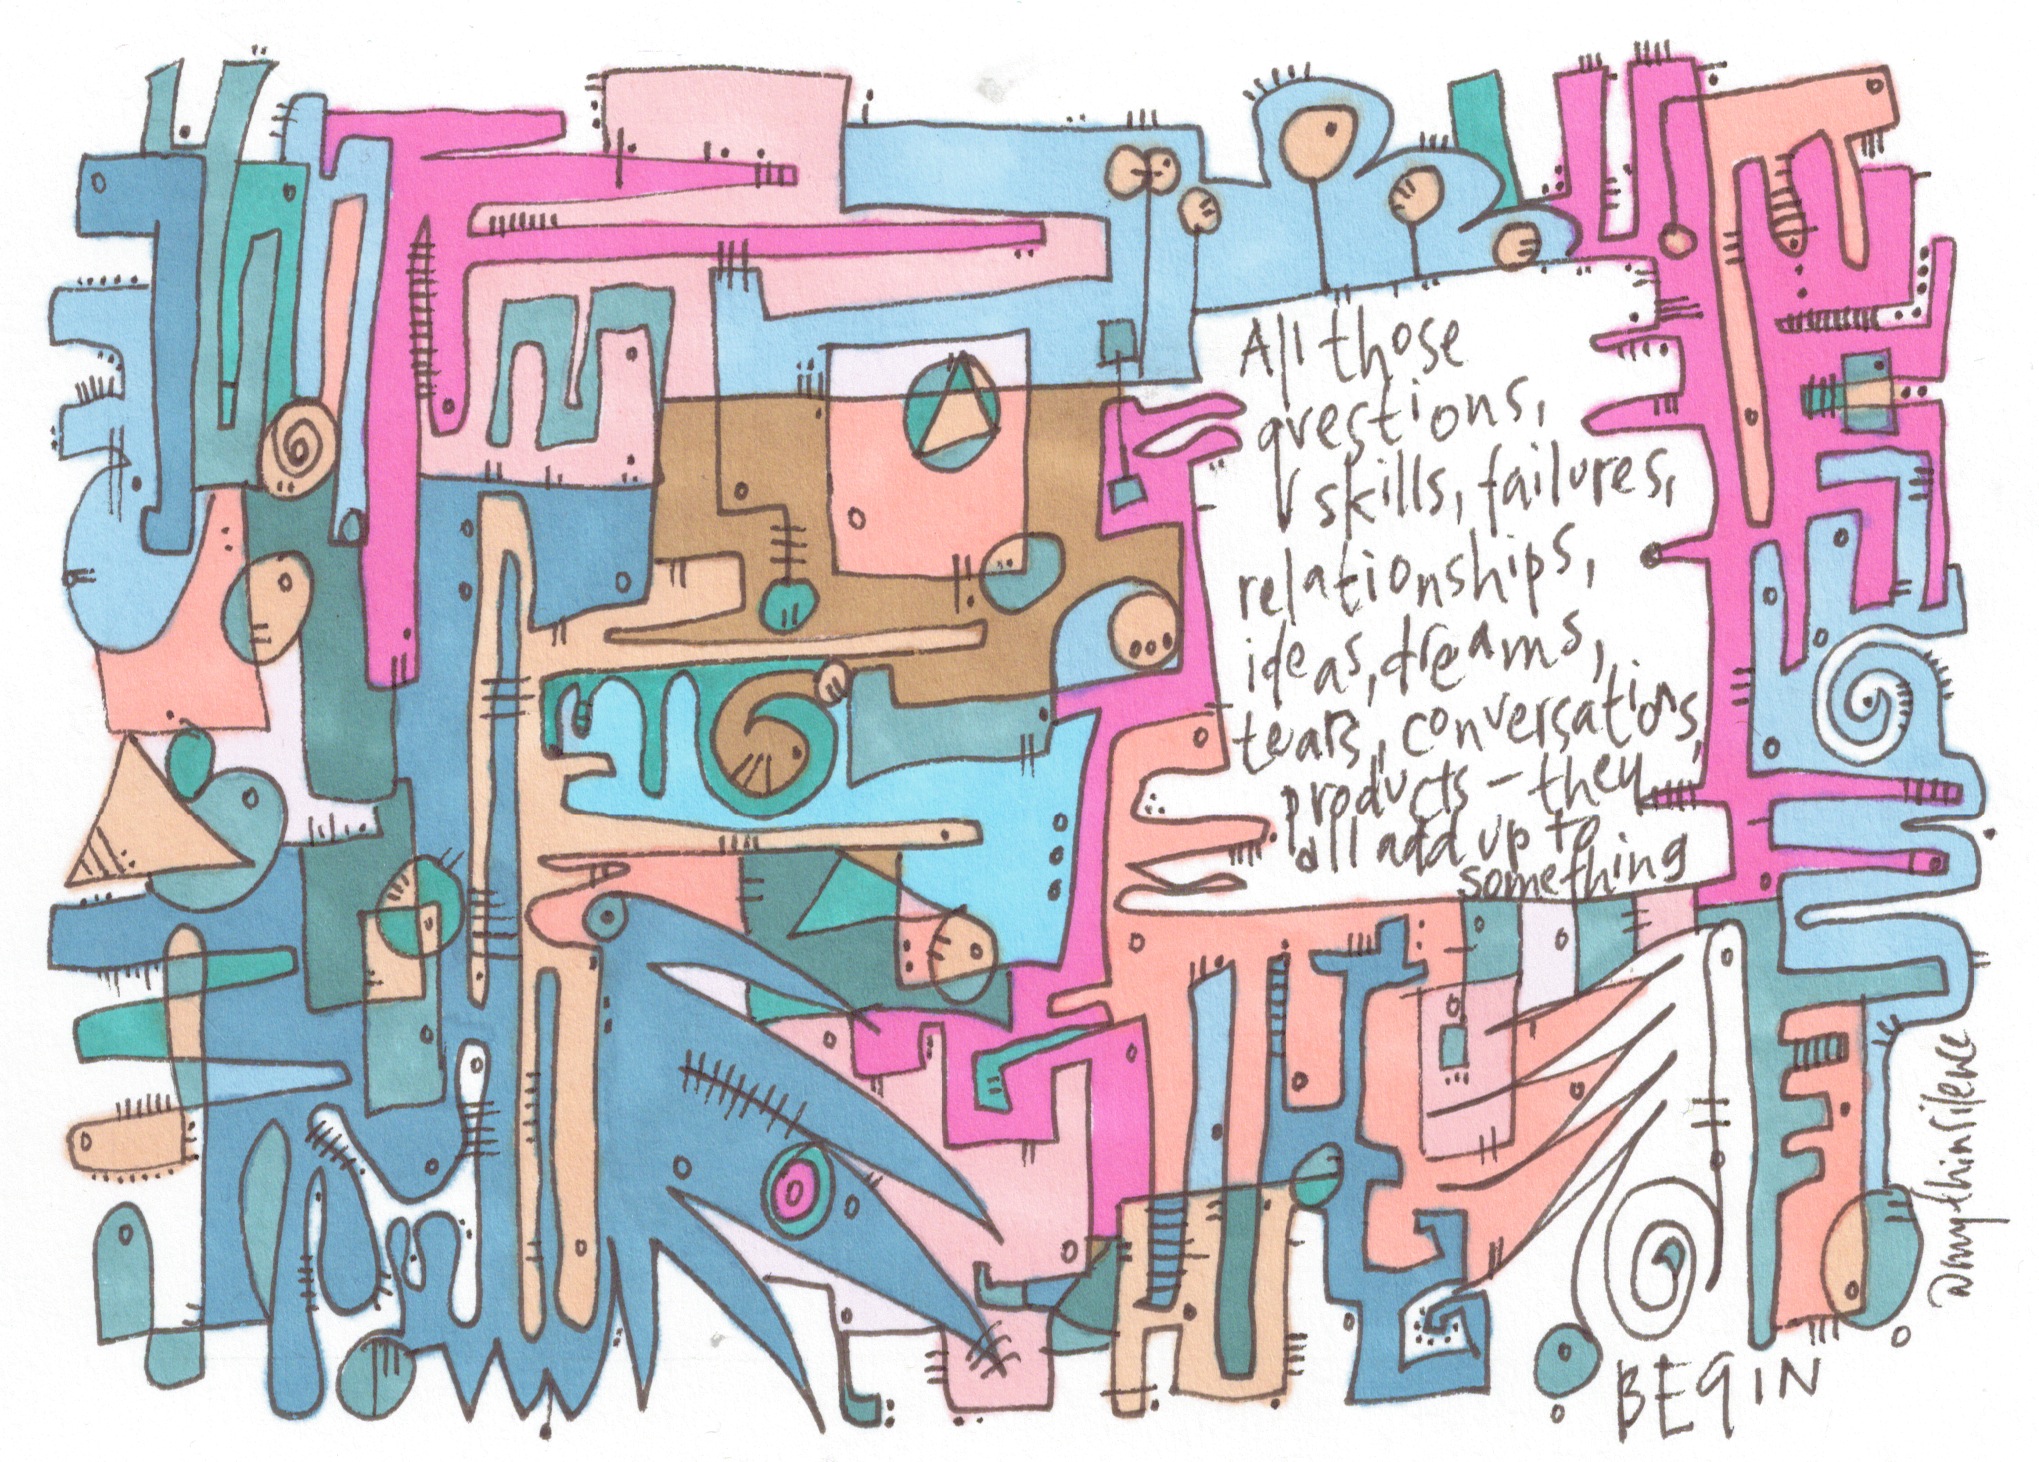 All those
questions,
skills, failures,
relationships,
ideas, dreams,
tears, conversations,
products - they
all add up to
something
@amythinsilence
BEGIN